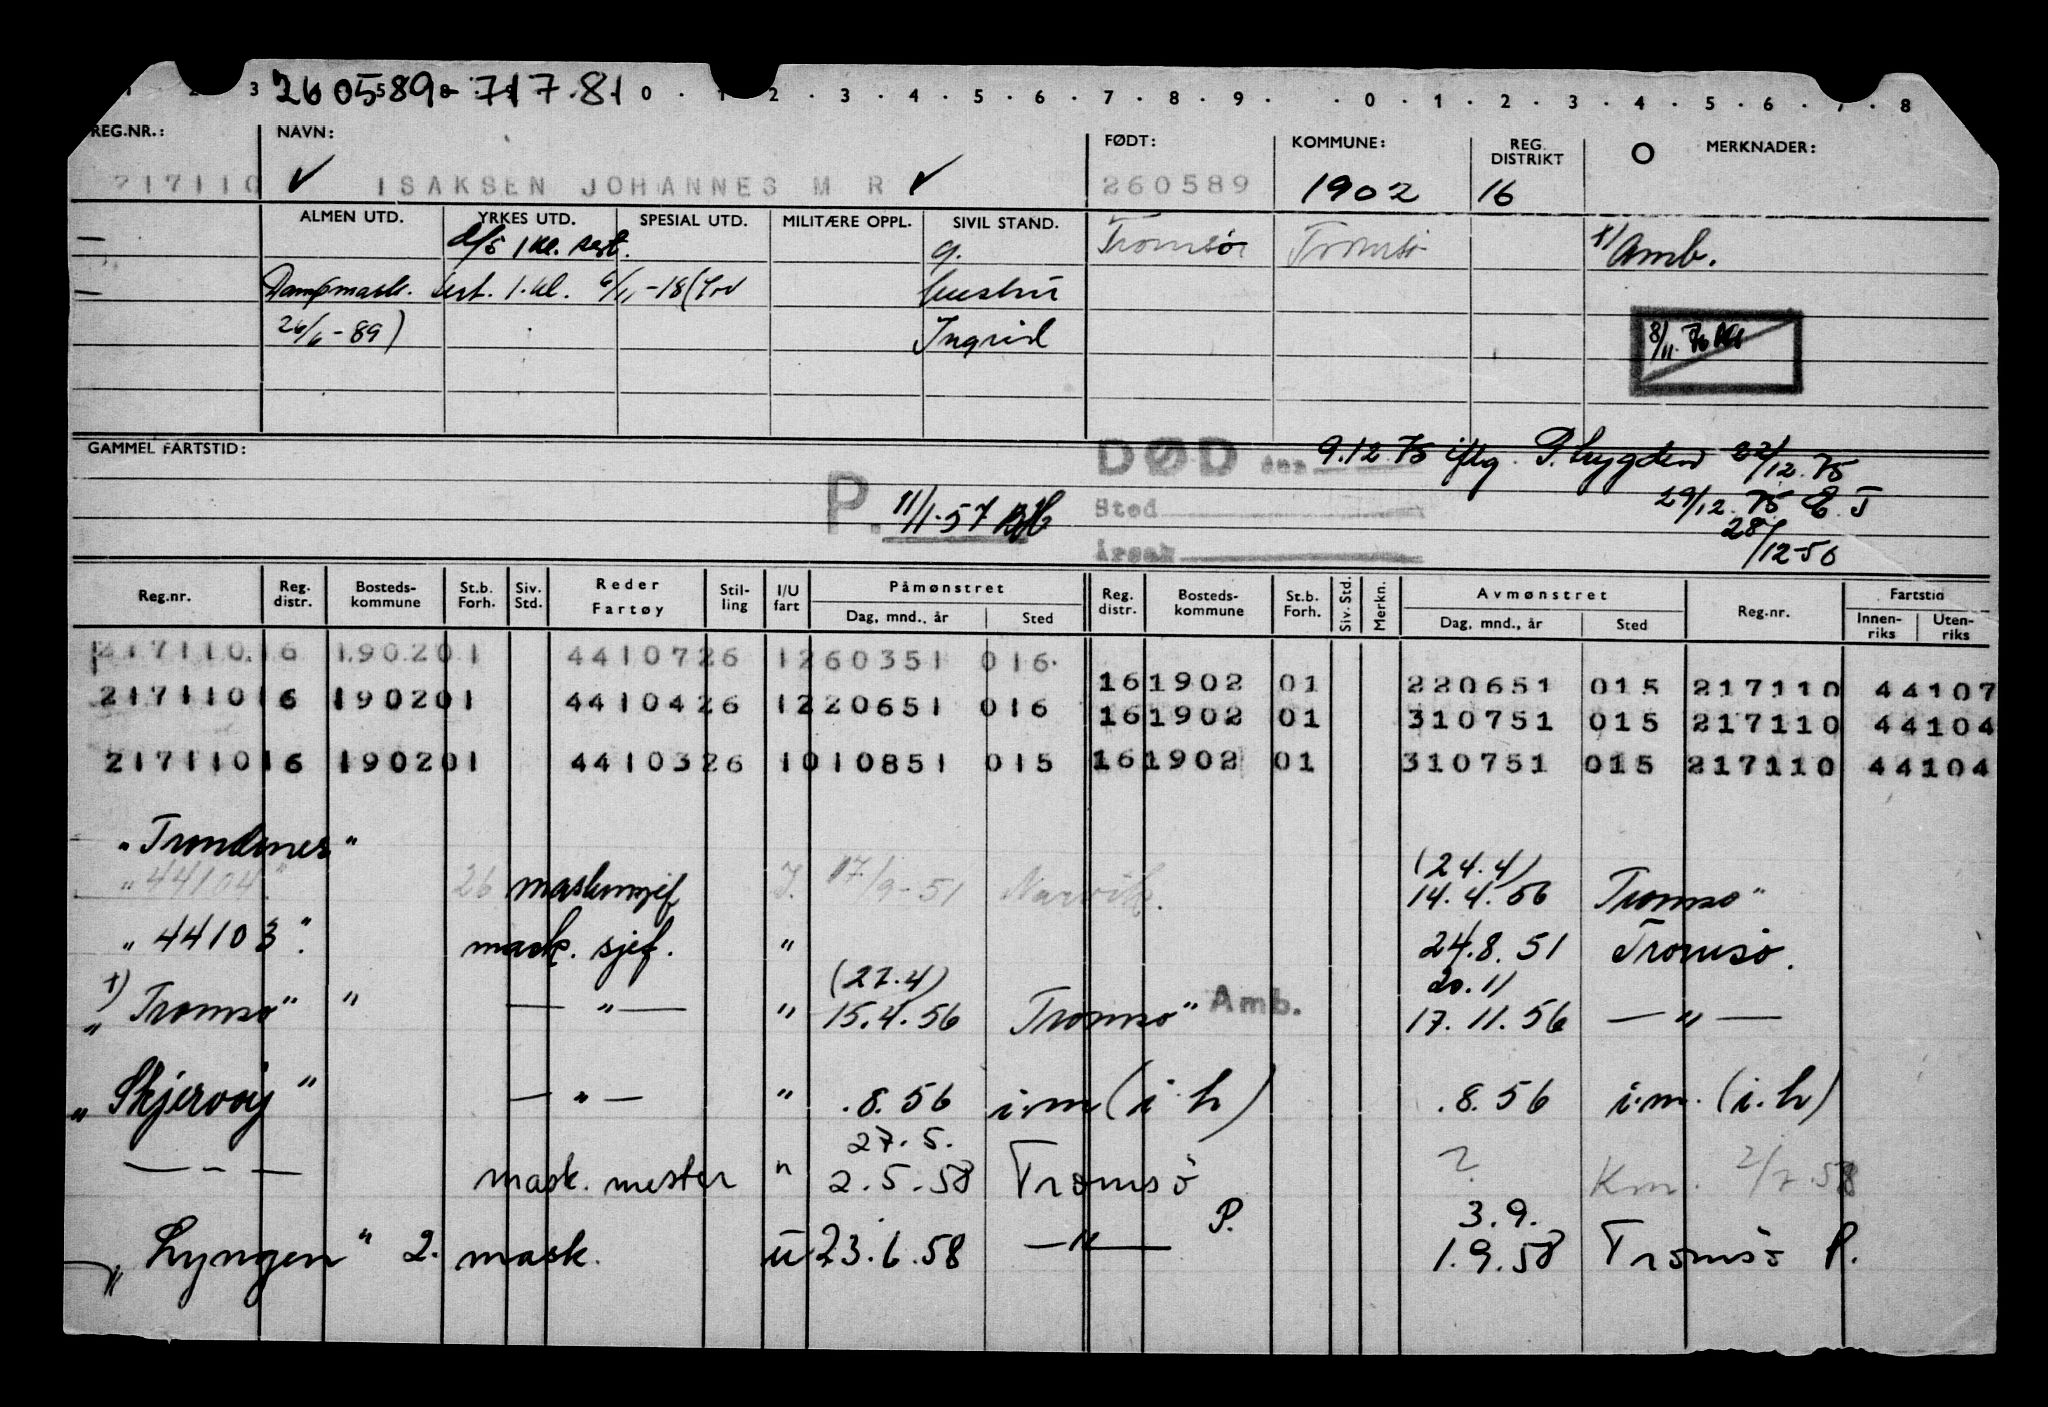 260589-717.81
1 2 3 0 . 1 2 . 3 . 4 . 5 . 6 . 7 . 8 . 9 . . 0 . 1 . 2 . 3 . 4 . 5 . 6 . 7 . 8
REG.NR.: NAVN: FØDT: KOMMUNE: REG. DISTRIKT O MERKNADER:
217110 ✓ ISAKSEN JOHANNES M R ✓ 260589 1902 16
ALMEN UTD. YRKES UTD. SPESIAL UTD. MILITÆRE OPPL. SIVIL STAND.
1 kl. sert. g. Tromsø Tromsø x) Amb.
Dampmask. sert. 1. kl. 6/11-18 hustru
26/6-89) Ingrid 8/11.
GAMMEL FARTSTID:
DØD den 9.12.75 iflg. 22/12.75
P. 11/1-57 Sted 29/12.75 E. J
Årsak 28/12-56
Reg.nr. Reg. distr. Bosteds-kommune St.b. Forh. Siv. Std. Reder Fartøy Stil-ling I/U fart Påmønstret Reg. distr. Bosteds-kommune St.b. Forh. Siv. Std. Merkn. Avmønstret Reg.nr. Fartstid
Dag, mnd., år Sted Dag, mnd., år Sted Innen-riks Uten-riks
217110 16 190201 4410726 1260351 016 161902 01 220651 015 217110 44107
217110 16 190201 4410426 1220651 016 161902 01 310751 015 217110 44104
217110 16 190201 4410326 1010851 015 161902 01 310751 015 217110 44104
"Trondenes"
(24.4)
"44104" 26 maskinsjef I. 17/9-51 Narvik. 14.4.56 Tromsø"
"44103" mask. sjef. " 24.8.51 Tromsø.
(27.4) 20.11
x) "Tromsø" " — " — " 15.4.56 Tromsø" Amb. 17.11.56 — " —
"Skjervøy" — " — " .8.56 i.m (i.h) .8.56 i.m. (i.h)
27.5.
— " — mask. mester " 2.5.58 Tromsø ? Km. 2/7.58
P. 3.9.
"Lyngen" 2. mask. u 23.6.58 — " — 1.9.58 Tromsø P.